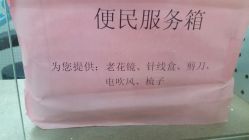 便民服务箱
为您提供：老花镜、针线盒、剪刀、
电吹风、梳子